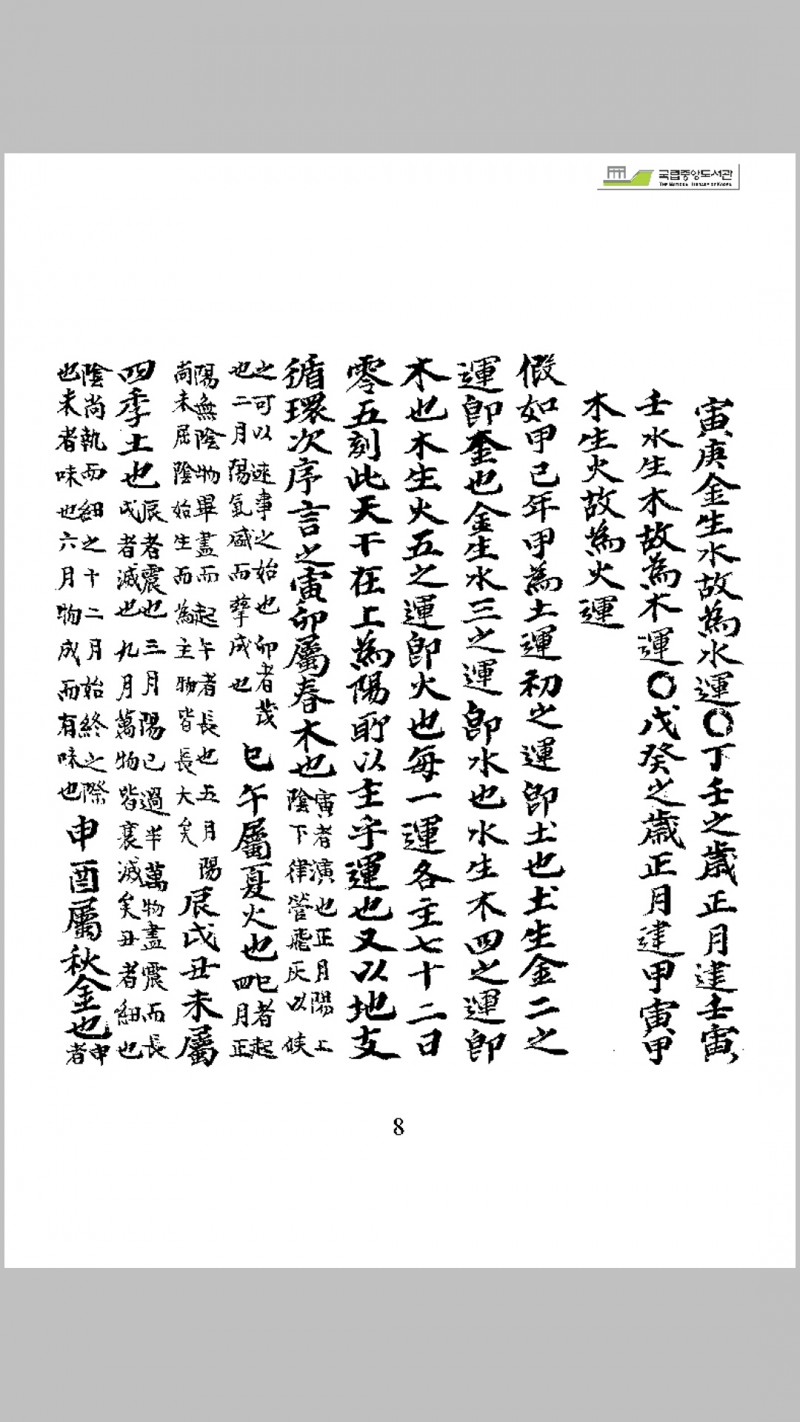 국립중앙도서관
THE NATIONAL LIBRARY OF KOREA
寅庚金生水故為水運〇丁壬之歲正月建壬寅
壬水生木故為木運〇戊癸之歲正月建甲寅甲
木生火故為火運
假如甲己年甲為土運初之運即土也土生金二之
運即金也金生水三之運即水也水生木四之運即
木也木生火五之運即火也每一運各主七十二日
零五刻此天干在上為陽所以主乎運也又以地支
循環次序言之寅卯屬春木也
寅者演也正月陽上
陰下律管飛灰以候
之可以述事之始也卯者茂
也二月陽氣盛而孳成也
巳午屬夏火也
巳者起
四月正
陽無陰物畢盡而起午者長也五月陽
尚未屈陰始生而為主物皆長大矣
辰戌丑未屬
四季土也
辰者震也三月陽已過半萬物盡震而長
戌者滅也九月萬物皆衰滅矣丑者紐也
陰尚執而紐之十二月始終之際
也未者味也六月物成而有味也
申酉屬秋金也
申
者
8